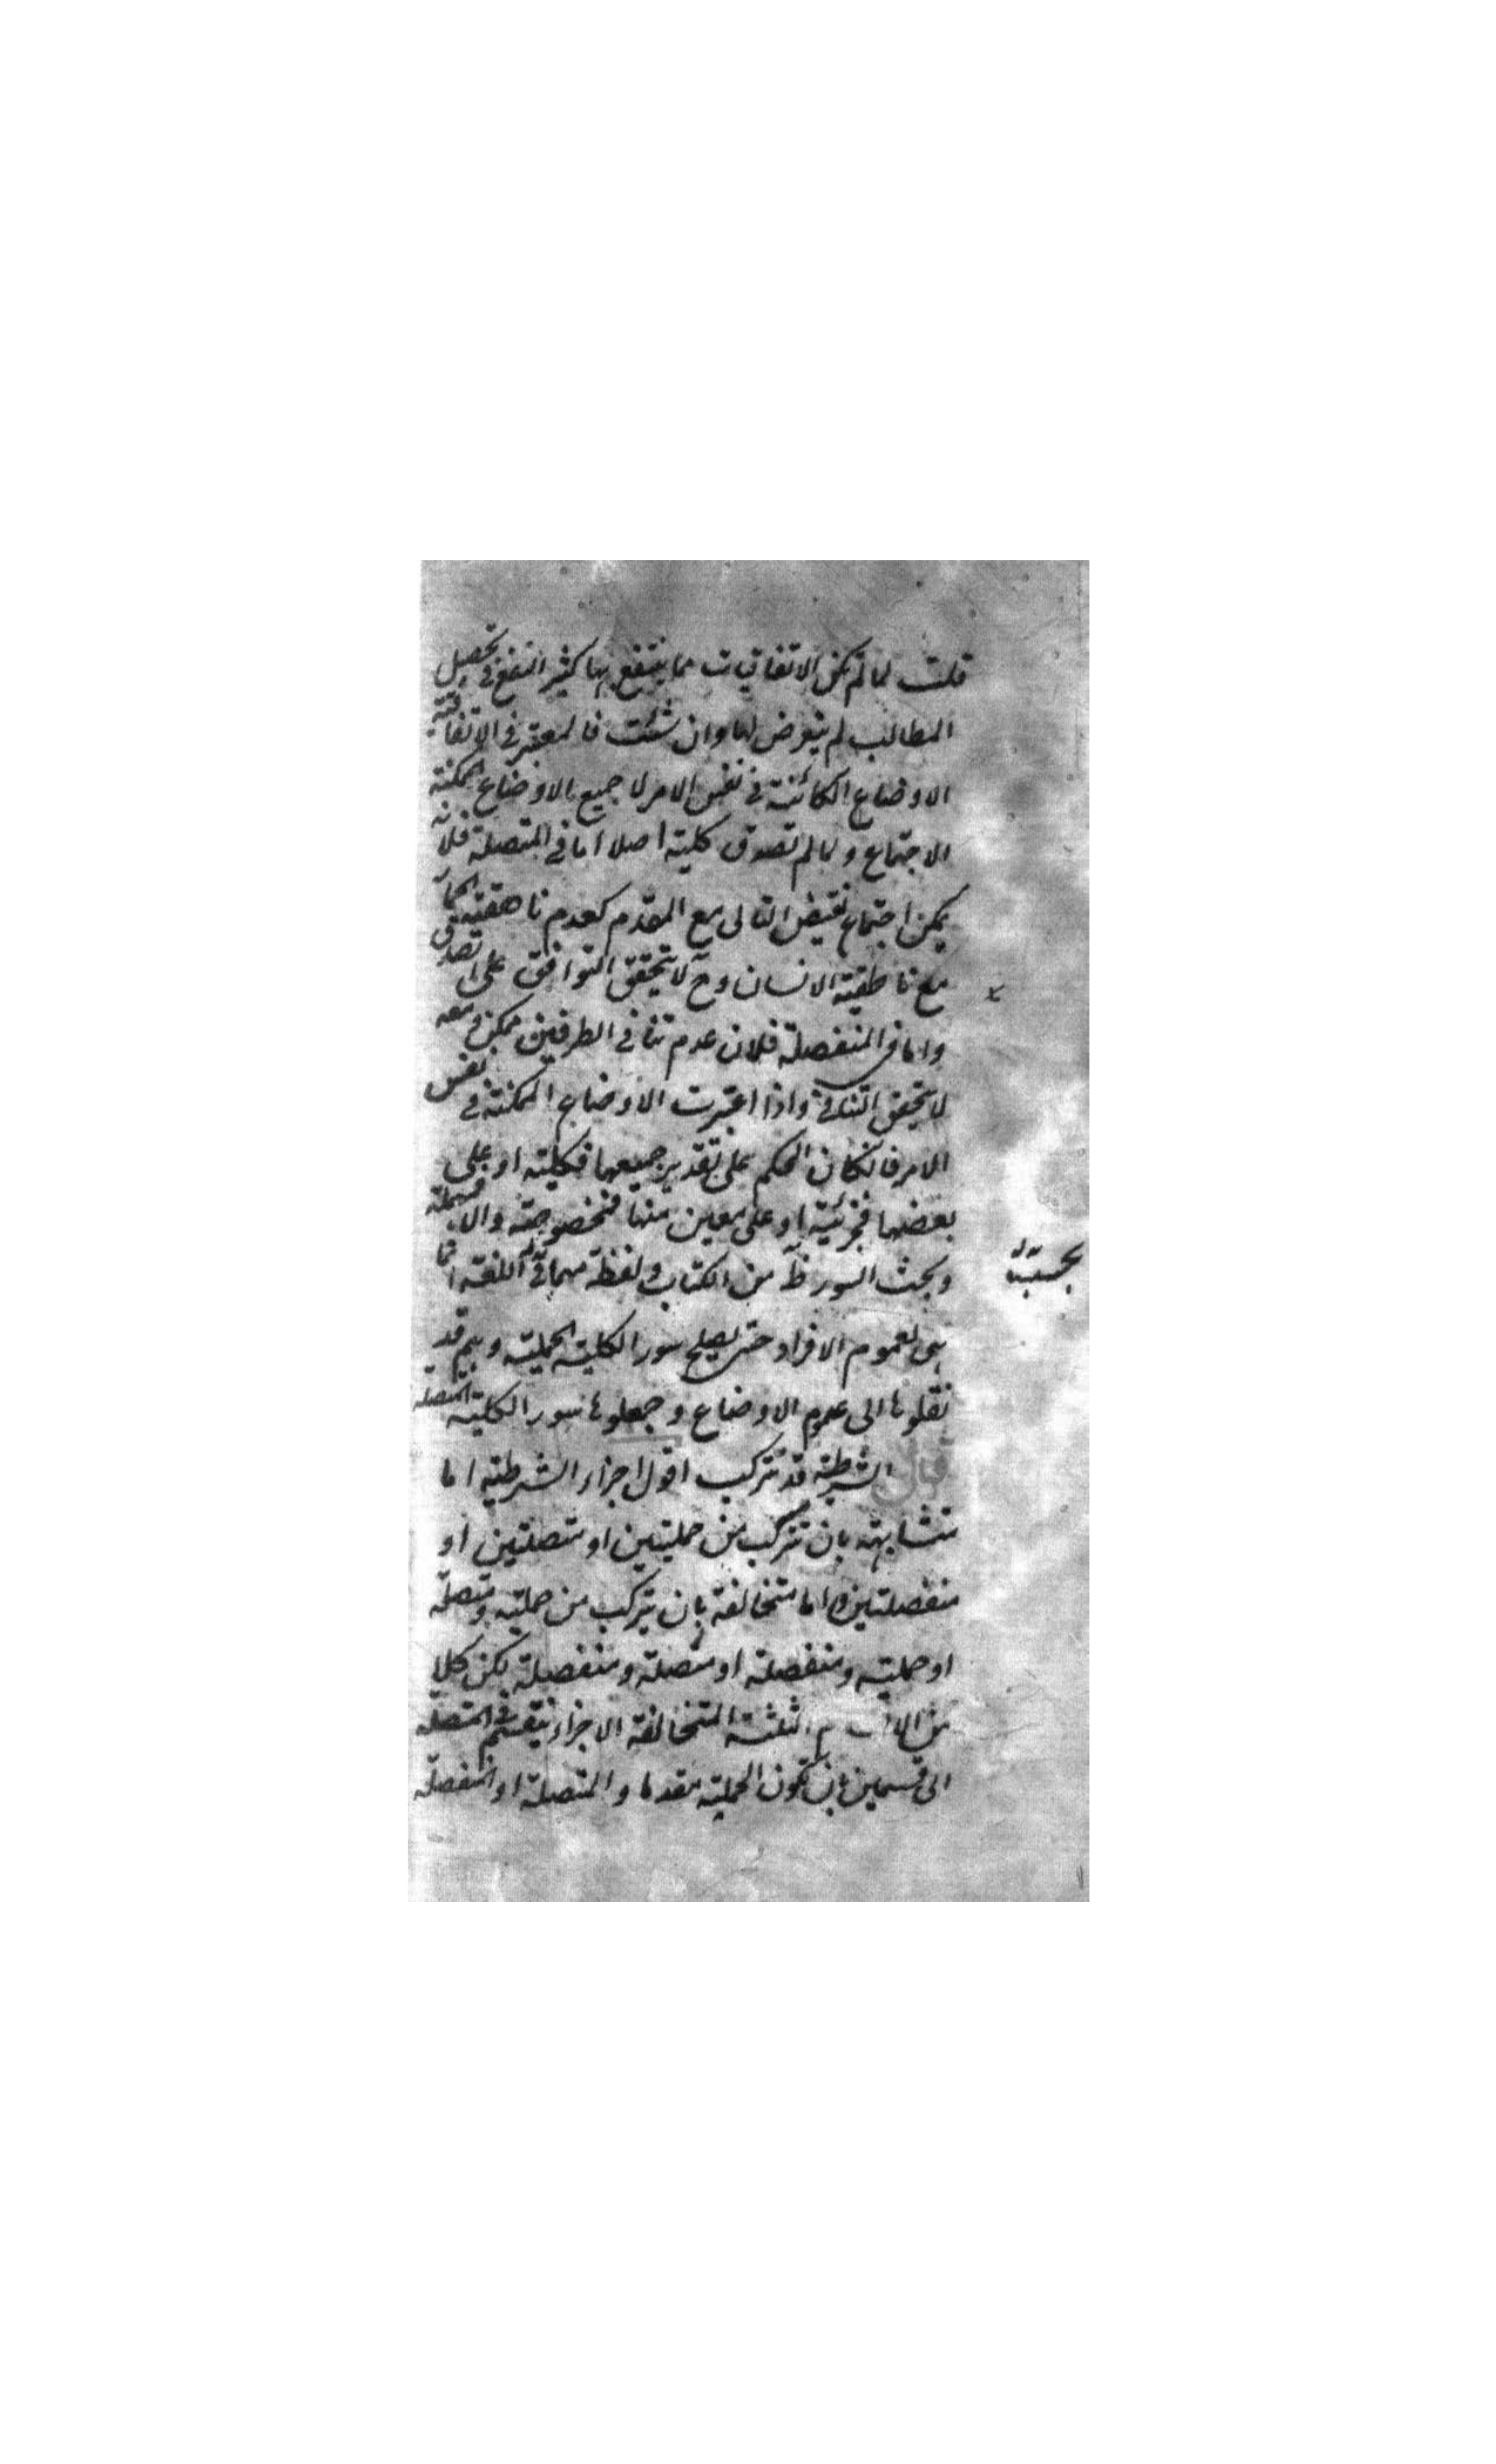 قلت لما لم تكن الاتفاقيات مما ينتفع بها كثير النفع فى تحصيل
المطالب لم يتعرض لها وان شئت فالمعتبر فى الاتفاقية
الاوضاع الكائنة فى نفس الامر لا جميع الاوضاع الممكنة
الاجتماع ولما لم تصدق كلية اصلا اما فى المتصلة فلانه
يمكن اجتماع نقيض التالى مع المقدم كعدم ناهقية الحمار
مع ناطقية الانسان وح لا يتحقق التوافق على
واما فى المنفصلة فلان عدم تنافى الطرفين ممكن ومعه
لا يتحقق التنافى واذا اعتبرت الاوضاع الممكنة فى نفس
الامر فانكان الحكم على تقدير جميعها فكلية او على
بعضها فجزئية او على معين منها فمخصوصة والا فمهملة
وبحث السور ظ من الكتاب ولفظة مهما فى اللغة انما
هى لعموم الافراد حتى يصلح سور الكلية الحملية وهم قد
نقلوها الى عموم الاوضاع وجعلوها سور الكلية المتصلة
قال الشرطية قد تتركب اقول اجزاء الشرطية اما
متشابهة بان تتركب من حمليتين او متصلتين او
منفصلتين واما متخالفة بان يتركب من حملية ومتصلة
او حملية ومنفصلة او متصلة ومنفصلة لكن كلا
من الاقسام الثلثة المتخالفة الاجزاء ينقسم فى المتصلة
الى قسمين بان تكون الحملية مقدما والمتصلة او المنفصلة